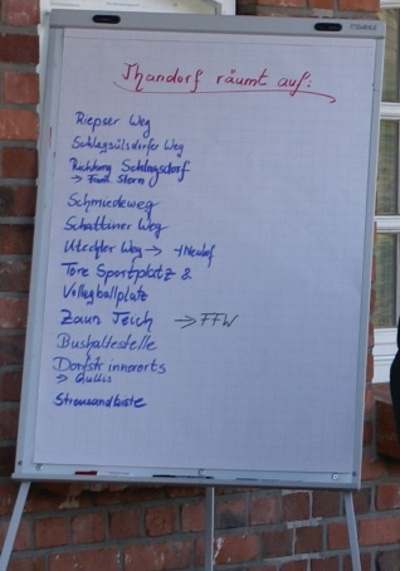 DAHLE
Thandorf räumt auf:
Riepser Weg
Schlagsülsdorfer Weg
Richtung Schlagsdorf
→ Fam. Stern
Schmiedeweg
Schattiner Weg
Utechter Weg → Neuhof
Tore Sportplatz &
Volleyballplatz
Zaun Teich → FFW
Bushaltestelle
Dorfstr innerorts
→ Gullis
Streusandkiste